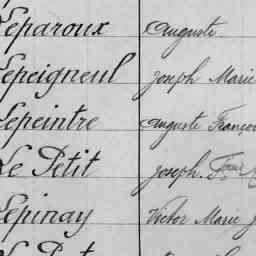 Leparoux Auguste
Lepeigneul Joseph Marie
Lepeintre Auguste Françoi
Le Petit Joseph.
Lepinay Victor Marie J